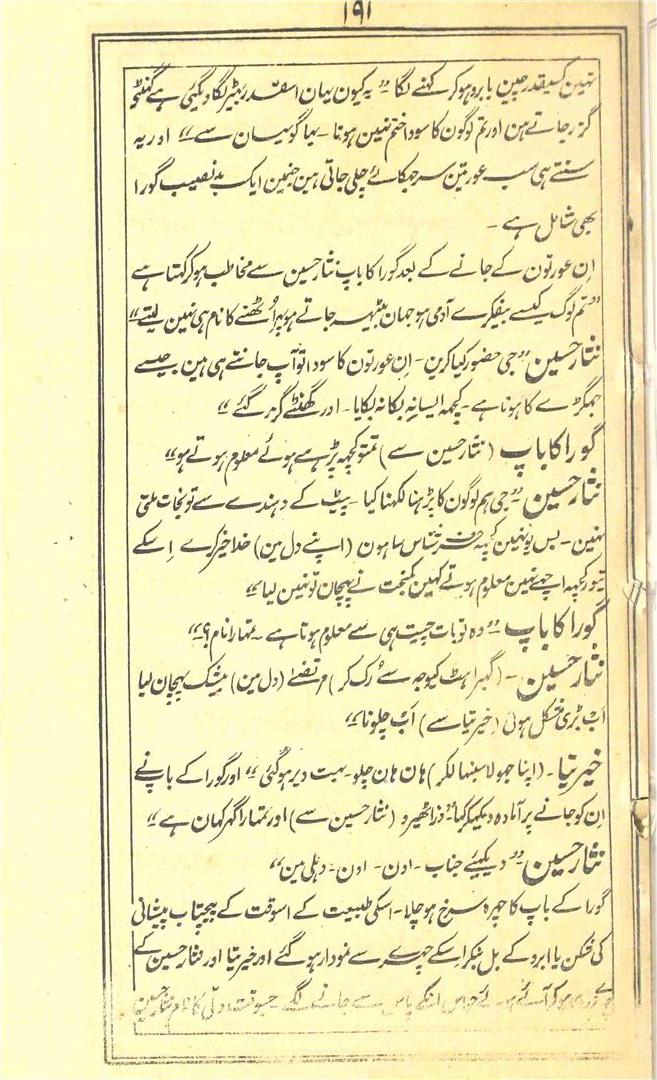 ۱۹۱
نہین کسیقدر چین بابرو ہو کر کہنے لگا ”یہ کیون یہان اسقدر بہیڑ لگا دیگئی ہے گہنٹے
گزر جاتے ہین اور تم لوگون کا سودا ختم نہین ہوتا۔ بہاگو یہان سے“ اور یہ
سنتے ہی سب عورتین سر جہکائے چلی جاتی ہین جنمین ایک بدنصیب گورا
بھی شامل ہے۔
ان عورتون کے جانے کے بعد گورا کا باپ نثار حسین سے مخاطب ہو کر کہتا ہے
”تم لوگ کیسے بیفکرے آدمی ہو جہان بیٹہہ جاتے ہو پہر اُٹھنے کا نام ہی نہین لیتے“
نثار حسین ”جی حضور کیا کرین۔ ان عورتون کا سودا تو آپ جانتے ہی ہین جیسے
جہگڑے کا ہوتا ہے۔ کچہہ ایسا نہ بکا نہ بکایا۔ اور گھنٹے گزر گئے“
گورا کا باپ (نثار حسین سے) تم تو کچہہ پڑھے ہوئے معلوم ہوتے ہو“
نثار حسین ”جی ہم لوگون کا پڑہنا لکہنا کیا۔ پیٹ کے دہندے سے تو نجات ملتی
نہین۔ بس یونہین کچہہ حرف شناس سا ہون (اپنے دل مین) خدا خیر کرے اسکے
تیور کچہہ اچہے نہین معلوم ہوتے کہین کمبخت نے پہچان تو نہین لیا“
گورا کا باپ ”وہ تو بات چیت ہی سے معلوم ہوتا ہے۔ تمہارا نام؟“
نثار حسین۔ (گہبراہٹ کیوجہ سے رک کر) مرتضےٰ (دل مین) بیشک پہچان لیا
اب بڑی مشکل ہوئی (خیرتیا سے) اَبْ چلو نا“
خیرتیا۔ (اپنا جہولا سنبہالکر) ہان ہان چلو۔ بہت دیر ہو گئی“ اور گورا کے باپ نے
ان کو جانے پر آمادہ دیکہکر کہا ”ذرا ٹھیرو (نثار حسین سے) اور تمہارا گہر کہان ہے“
نثار حسین ”دیکہئے جناب۔ اون۔ اون۔ دہلی مین“
گورا کے باپ کا چہرہ سرخ ہو چلا۔ اسکی طبیعت کے اسوقت کے پیچتاب پیشانی
کی شکن یا ابرو کے بل بنکر اسکے چہرے سے نمودار ہو گئے اور خیرتیا اور نثار حسین کے
ہو کر آئے ہوئے حواس انکے پاس سے جانے لگے۔ جسوقت دلی کا نام نثار حسین